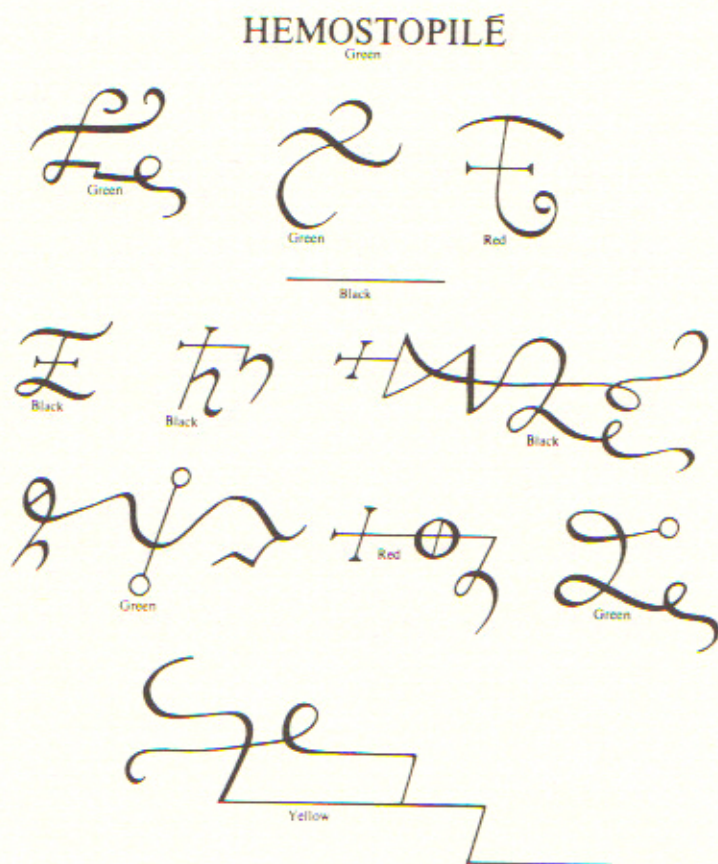 HEMOSTOPILÉ
Green
Green
Green
Red
Black
Black
Black
Black
Green
Red
Green
Yellow